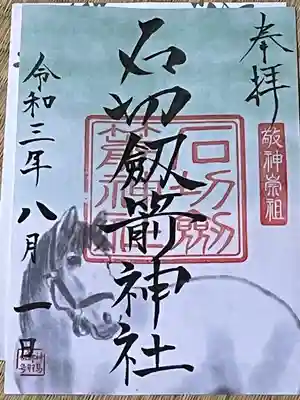 奉拝
敬神崇祖
石切劔箭神社
石切劔箭神社
令和三年八月一日